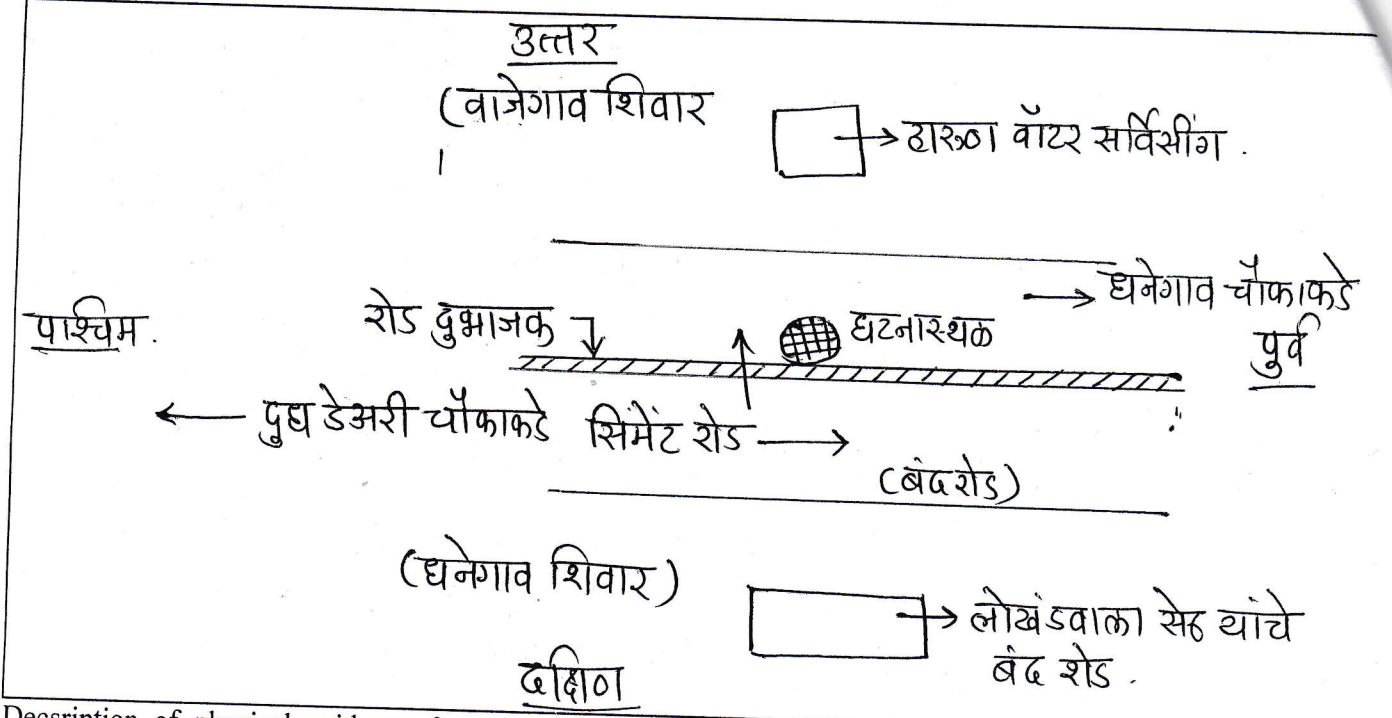 उत्तर
(वाजेगाव शिवार
हारुण वॉटर सर्विसींग .
धनेगाव चौकाकडे
पूर्व
पश्चिम .
रोड दुभाजक
घटनास्थळ
दुध डेअरी चौकाकडे
सिमेंट रोड
(बंद रोड)
(धनेगाव शिवार)
लोखंडवाला सेठ यांचे
बंद शेड .
दक्षिण